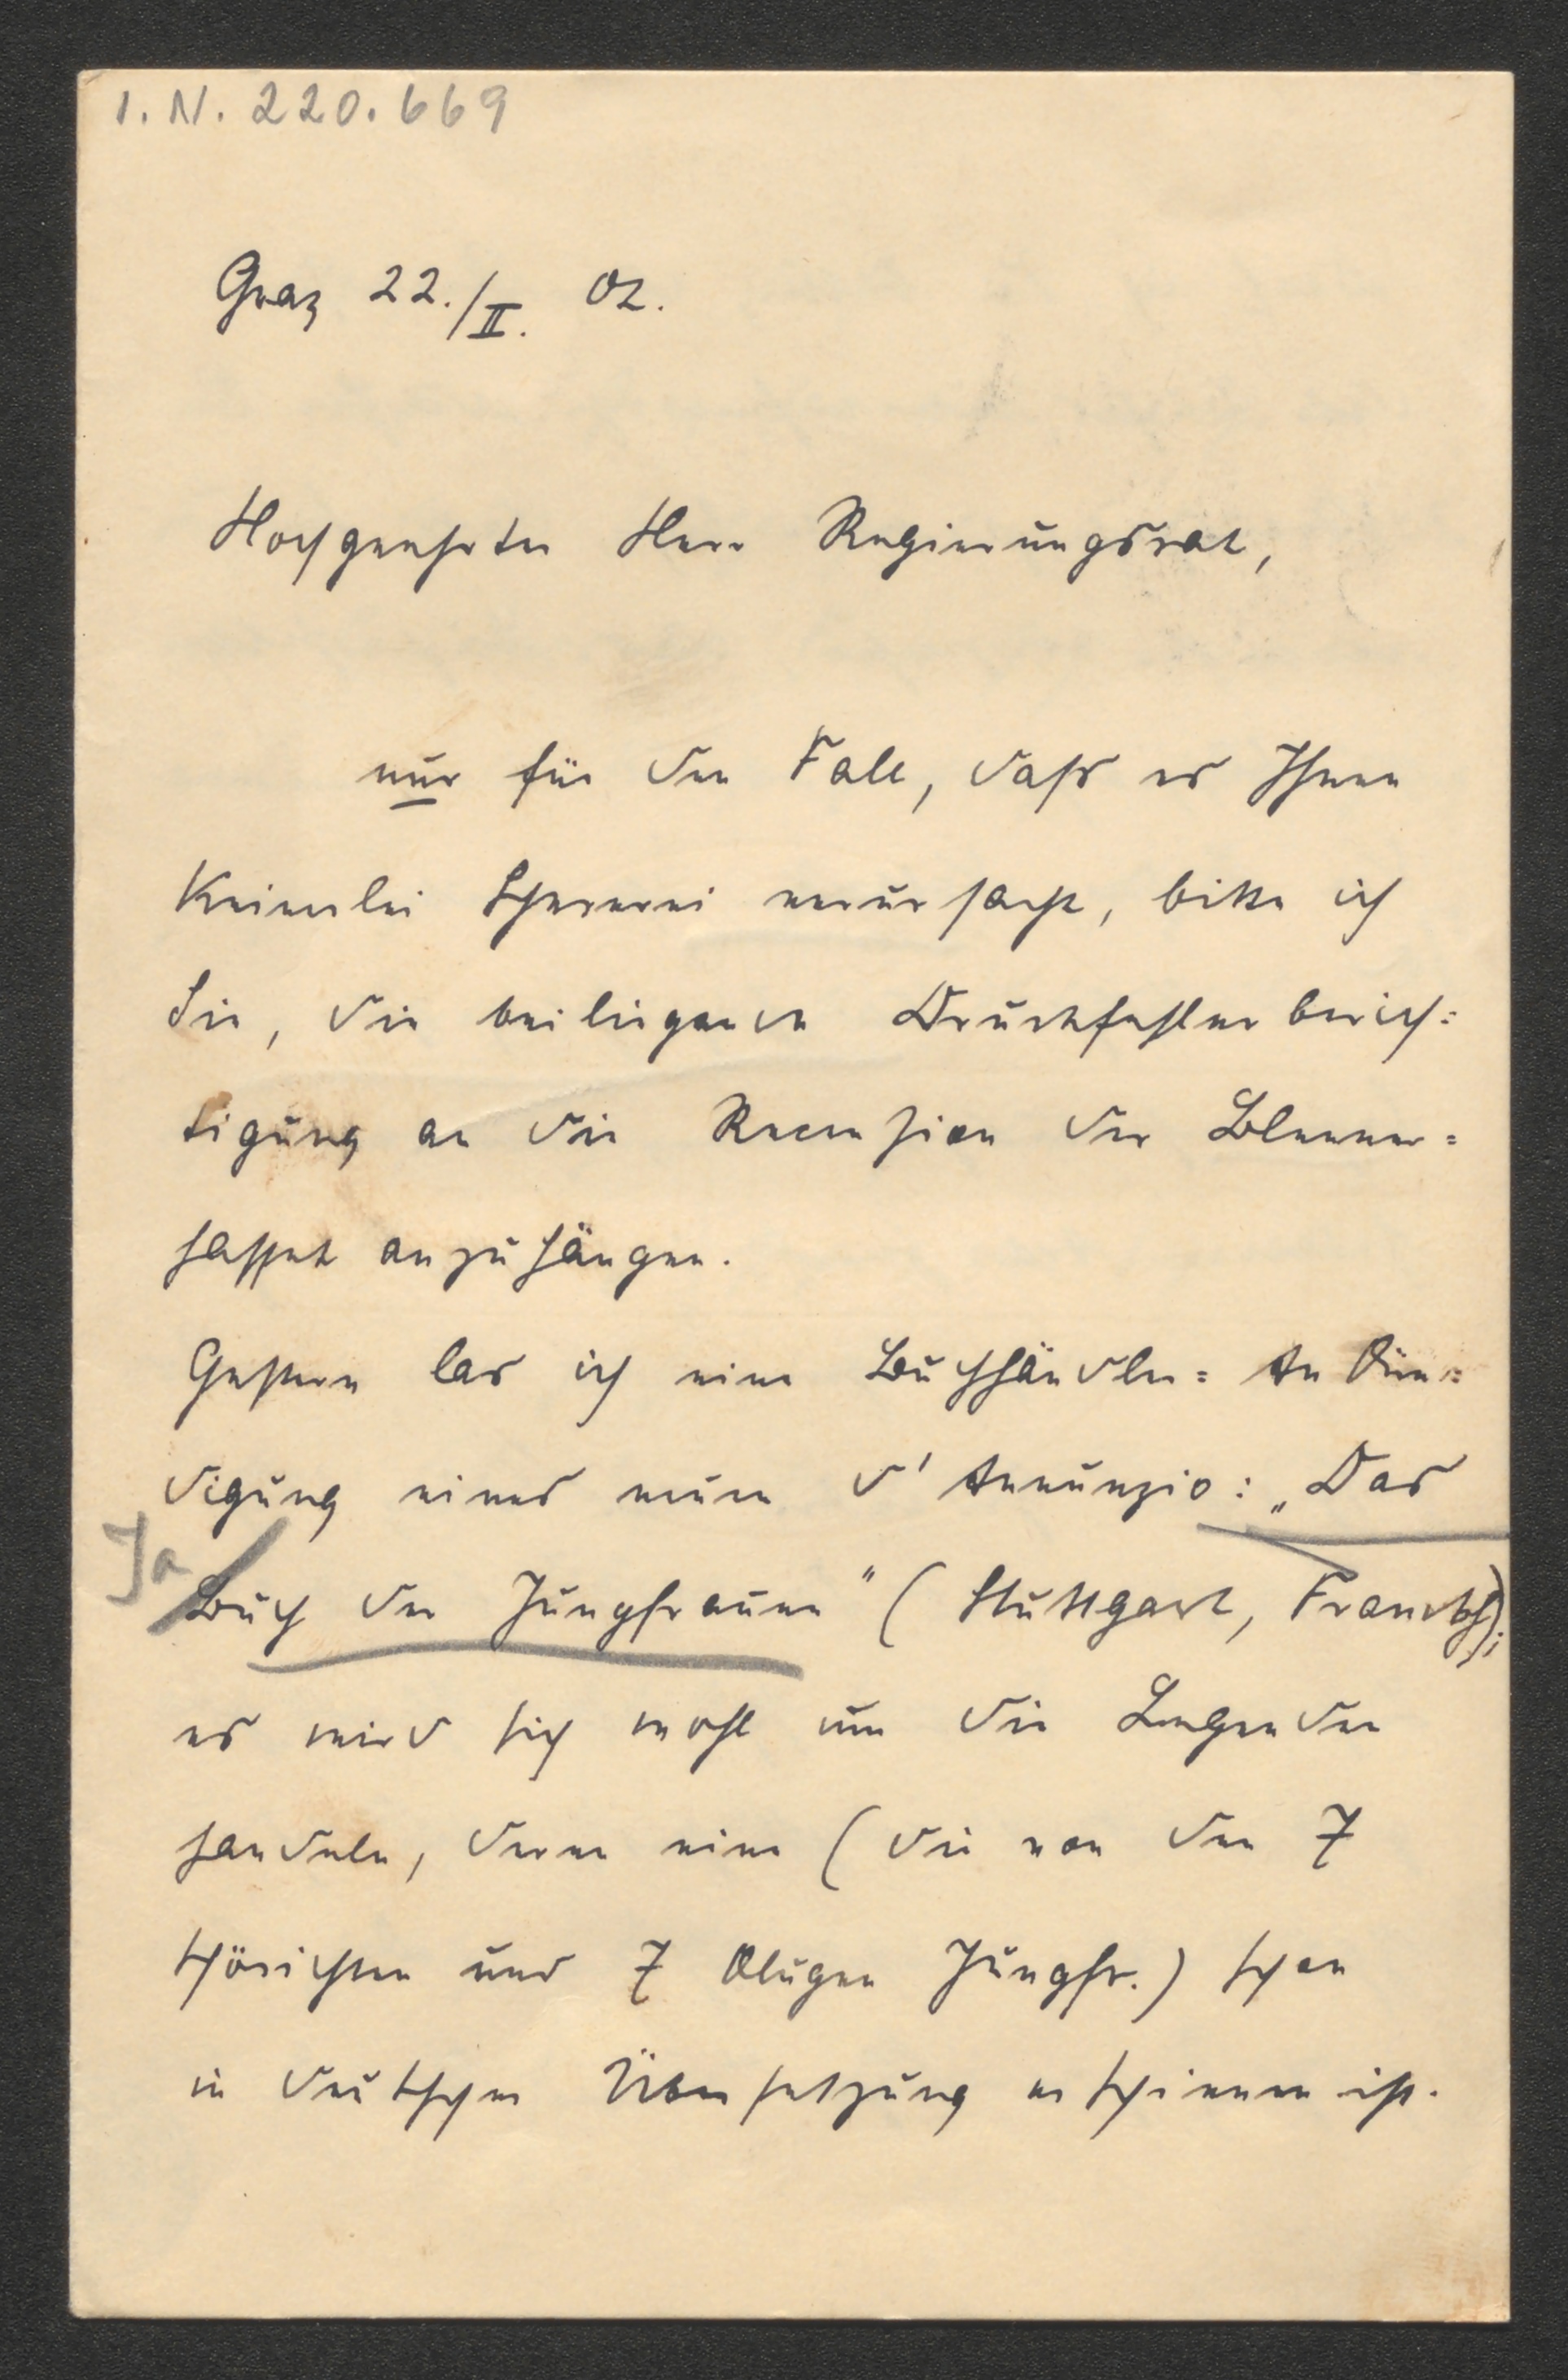 I. N. 220.669
Graz 22./II. 02.
Hochgeehrter Herr Regierungsrat,
nur für den Fall, dass es Ihnen
keinerlei Schererei verursacht, bitte ich
Sie, die beiliegende Druckfehlerberich=
tigung an die Recension der Blenner=
hasset anzuhängen.
Gestern las ich eine Buchhändler=Ankün=
digung eines neuen d'Annunzio: „Das
Ja
Buch der Jungfrauen" (Stuttgart, Franckh);
es wird sich wohl um die Legenden
handeln, deren eine (die von den 7
thörichten und 7 klugen Jungfr.) schon
in deutscher Übersetzung erschienen ist.